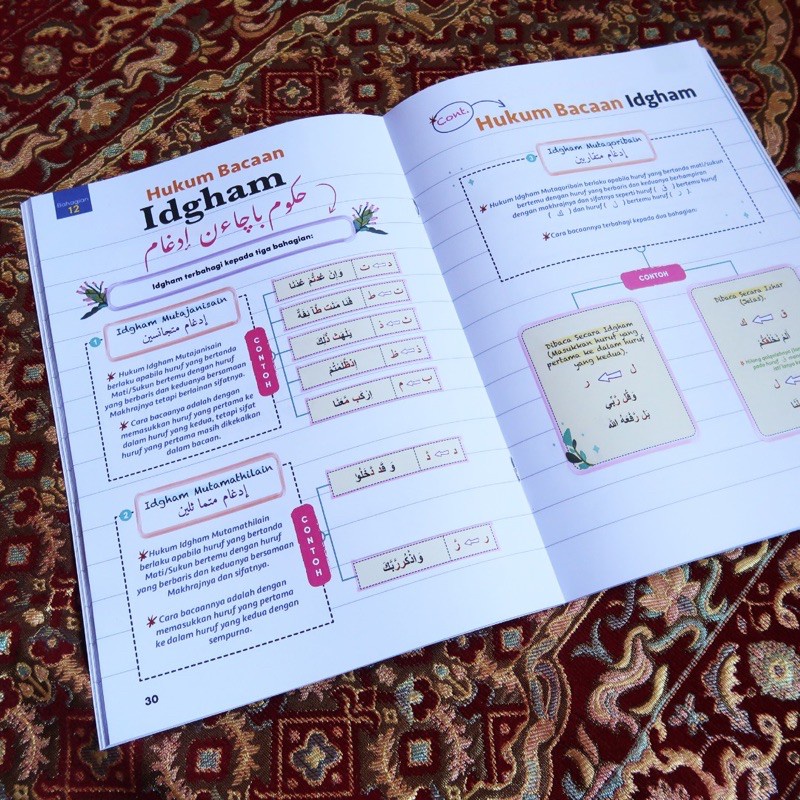 Bahagian
12
Hukum Bacaan
Idgham
حكوم باچاءن إدغام
Idgham terbahagi kepada tiga bahagian:
1
Idgham Mutajanisain
إدغام متجانسين
Hukum Idgham Mutajanisain
berlaku apabila huruf yang bertanda
Mati/Sukun bertemu dengan huruf
yang berbaris dan keduanya bersamaan
Makhrajnya tetapi berlainan sifatnya.
Cara bacaanya adalah dengan
memasukkan huruf yang pertama ke
dalam huruf yang kedua, tetapi sifat
huruf yang pertama masih dikekalkan
dalam bacaan.
CONTOH
د ⇦ ت
ت ⇦ ط
ث ⇦ ذ
ذ ⇦ ظ
يَلْهَثْ ذَٰلِكَ
ب ⇦ م
2
Idgham Mutamathilain
إدغام متما ثلين
Hukum Idgham Mutamathilain
berlaku apabila huruf yang bertanda
Mati/Sukun bertemu dengan huruf
yang berbaris dan keduanya bersamaan
Makhrajnya dan sifatnya.
Cara bacaannya adalah dengan
memasukkan huruf yang pertama
ke dalam huruf yang kedua dengan
sempurna.
CONTOH
وَ قَد دَّخَلُوْ
ر ⇦ رَّ
وَاذْكُر رَّبَّكَ
30
Cont.
Hukum Bacaan Idgham
3
Idgham Mutaqoribain
إدغام متقاربين
Hukum Idgham Mutaqoribain berlaku apabila huruf yang bertanda mati/sukun
bertemu dengan huruf yang berbaris dan keduanya berhampiran
dengan makhrajnya dan sifatnya seperti huruf ( ق ) bertemu huruf
( ك ) dan huruf ( ل ) bertemu huruf ( ر ).
Cara bacaannya terbahagi kepada dua bahagian:
CONTOH
Dibaca Secara Idgham
(Masukkan huruf yang
pertama ke dalam huruf
yang kedua).
ل ⇦ ر
وَقُل رَّبِّي
بَل رَّفَعَهُ الله
Dibaca Secara Izhar
(Jelas).
ق ⇦ ك